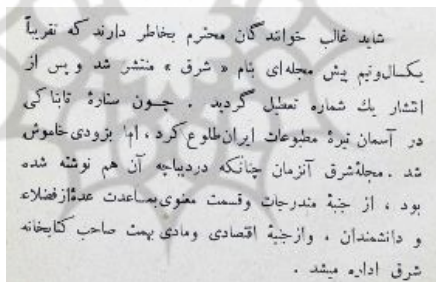 شاید غالب خوانندگان محترم بخاطر دارند که تقریباً
یکسال‌ونیم پیش مجله‌ای بنام « شرق » منتشر شد و پس از
انتشار یك شماره تعطیل گردید . چون ستارۀ تابناکی
در آسمان تیرۀ مطبوعات ایران طلوع کرد ، اما بزودی خاموش
شد . مجلۀ شرق آنزمان چنانکه در دیباچه آن هم نوشته شده
بود ، از جنبۀ مندرجات وقسمت معنوی بمساعدت عدۀ ازفضلاء
و دانشمندان ، وازجنبۀ اقتصادی ومادی بهمت صاحب کتابخانه
شرق اداره میشد .